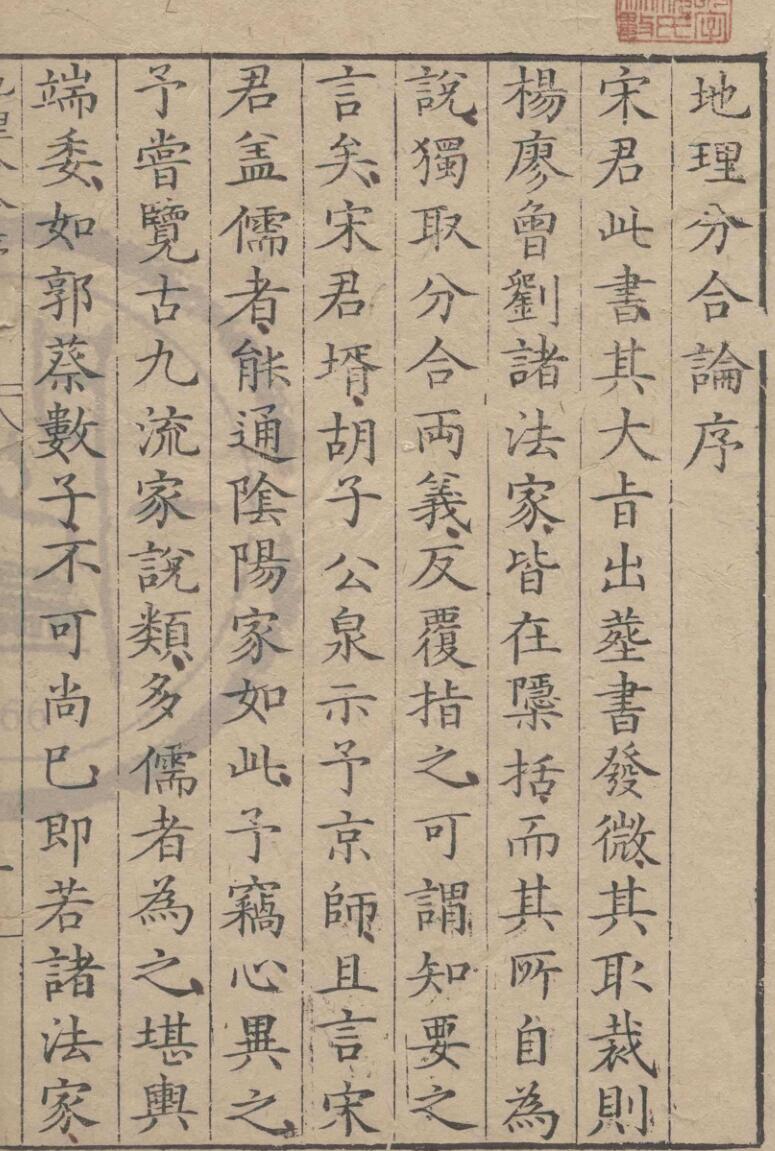 地理分合論序
宋君此書其大㫖出葬書發微、其取裁則
楊廖曾劉諸法家、皆在隱括、而其所自為
說、獨取分合兩義、反覆指之、可謂知要之
言矣、宋君壻、胡子公泉示予京師、且言宋
君盖儒者、能通陰陽家如此、予竊心異之、
予嘗覽古九流家說類、多儒者為之、堪輿
端委、如郭蔡數子、不可尚已即若諸法家、